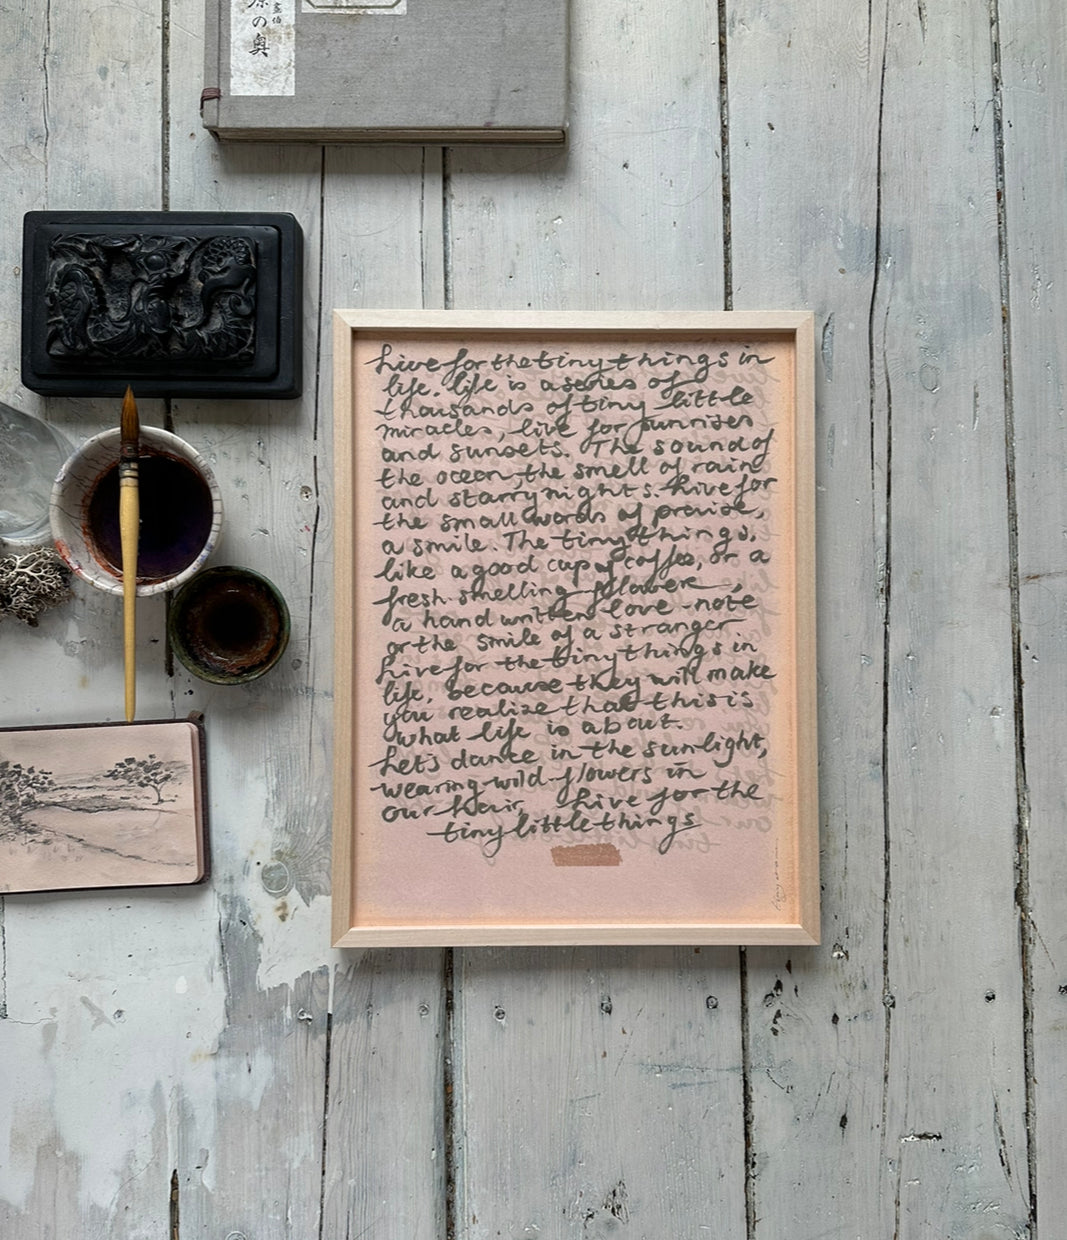 の奥
Live for the tiny things in
life. life is a series of
thousands of tiny little
miracles, live for sunrises
and sunsets. The sound of
the ocean, the smell of rain
and starry nights. Live for
the small words of praise,
a smile. The tiny things,
like a good cup of coffee, or a
fresh smelling flower,
a hand written love-note
or the smile of a stranger
Live for the tiny things in
life, because they will make
you realize that this is
what life is about.
Let's dance in the sunlight,
wearing wild flowers in
our hair, Live for the
tiny little things